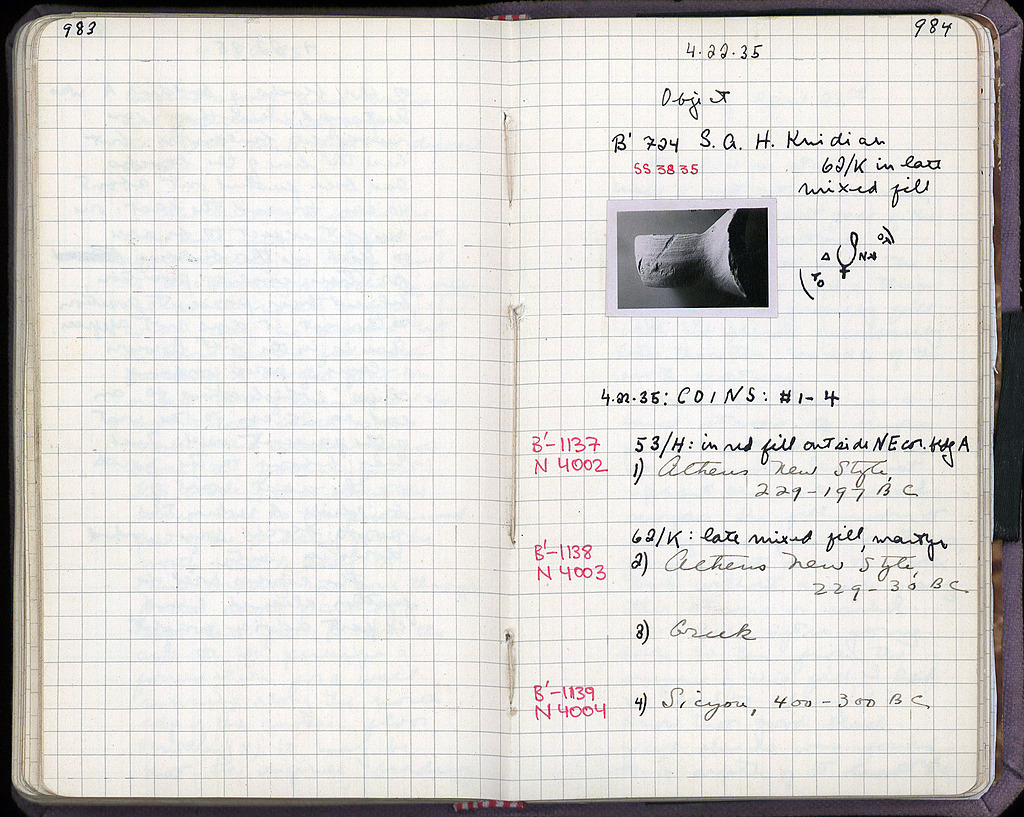 983
984
4.22.35
Object
B' 724 S. A. H. Knidian
SS 3835
62/K in late
mixed fill
4.22.35: COINS: #1-4
B'-1137
N 4002
53/H: in red fill outside NE cor. bldg A
1) Athens New Style,
229-197 B C
62/K: late mixed fill, martyr
B'-1138
N 4003
2) Athens New Style,
229-30 B C
3) Greek
B'-1139
N 4004
4) Sicyon, 400-300 B C